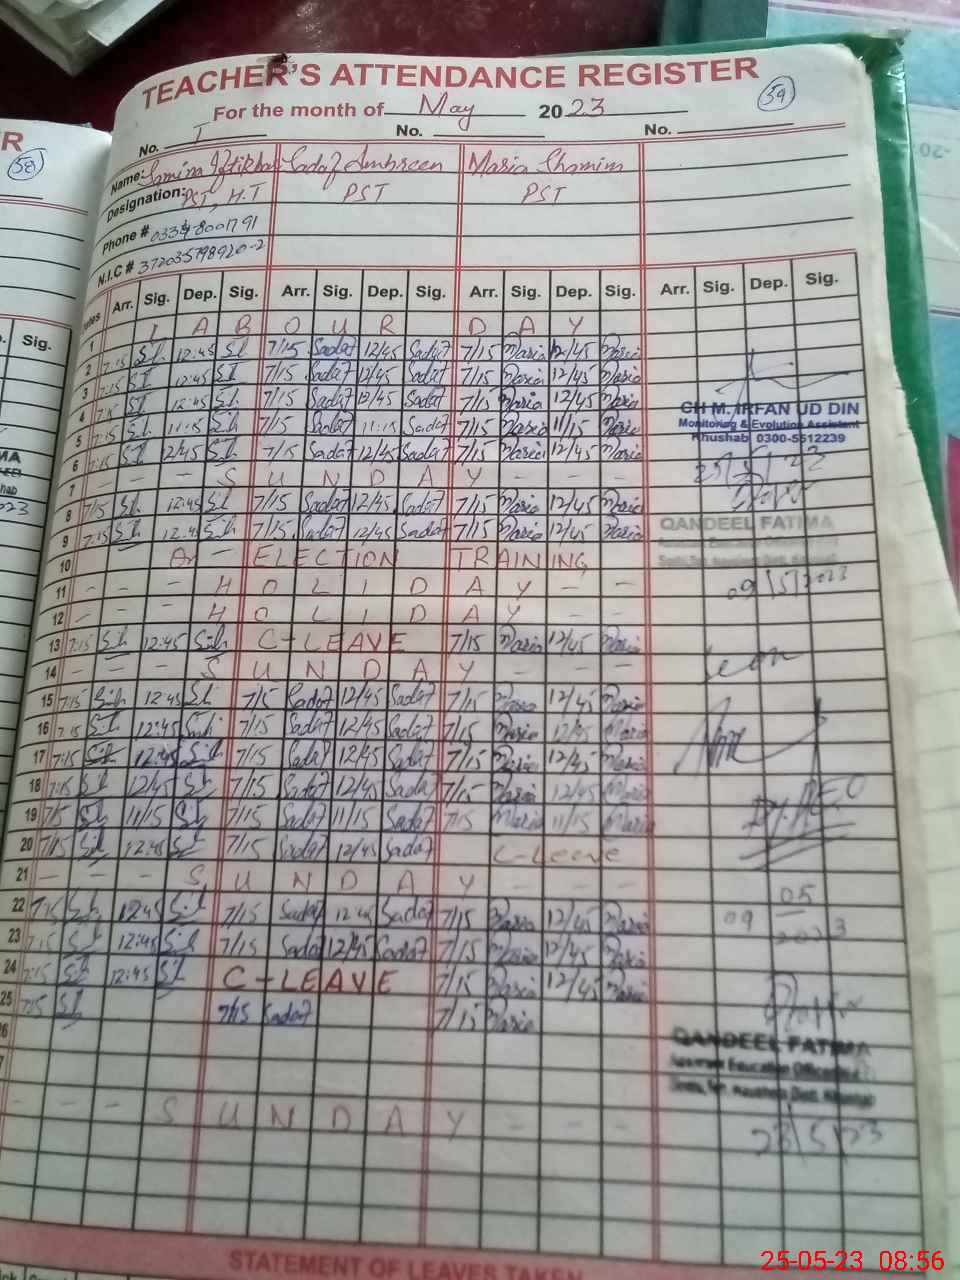 TEACHER'S ATTENDANCE REGISTER
For the month of May 2023
59
58
No. I No. No.
Name: Samina Iftikhar Sadaf Ambreen Maria Shamim
Designation: PST, H.T PST PST
Phone #
N.I.C #
Arr. Sig. Dep. Sig. Arr. Sig. Dep. Sig. Arr. Sig. Dep. Sig. Arr. Sig. Dep. Sig.
1 LABOUR DAY
2 7:15 12:45 7/15 Sadaf 12/45 Sadaf 7/15 Maria 12/45 Maria
3 7:15 12:45 7/15 Sadaf 12/45 Sadaf 7/15 Maria 12/45 Maria
4 7:15 12:45 7/15 Sadaf 12/45 Sadaf 7/15 Maria 12/45 Maria
5 7:15 11:15 7/15 Sadaf 11:15 Sadaf 7/15 Maria 11/15 Maria
6 7:15 12/45 7/15 Sadaf 12/45 Sadaf 7/15 Maria 12/45 Maria
7 - - - SUNDAY - - -
8 7/15 12:45 7/15 Sadaf 12/45 Sadaf 7/15 Maria 12/45 Maria
9 7:15 12:45 7/15 Sadaf 12/45 Sadaf 7/15 Maria 12/45 Maria
10 - ELECTION TRAINING
11 - - - HOLIDAY - - -
12 - - - HOLIDAY - -
13 7:15 12:45 C-LEAVE 7/15 Maria 12/45 Maria
14 - - - SUNDAY - - -
15 7:15 12:45 7/15 Sadaf 12/45 Sadaf 7/15 Maria 12/45 Maria
16 7:15 12:45 7/15 Sadaf 12/45 Sadaf 7/15 Maria 12/45 Maria
17 7:15 12:45 7/15 Sadaf 12/45 Sadaf 7/15 Maria 12/45 Maria
18 7:15 12/45 7/15 Sadaf 12/45 Sadaf 7/15 Maria 12/45 Maria
19 7/15 11/15 7/15 Sadaf 11/15 Sadaf 7/15 Maria 11/15 Maria
20 7/15 12:45 7/15 Sadaf 12/45 Sadaf C-Leave
21 - - - SUNDAY - - -
22 7:15 12:45 7/15 Sadaf 12:45 Sadaf 7/15 Maria 12/45 Maria
23 7:15 12:45 7/15 Sadaf 12/45 Sadaf 7/15 Maria 12/45 Maria
24 7:15 12:45 C-LEAVE 7/15 Maria 12/45 Maria
25 7:15 7/15 Sadaf 7/15 Maria
- - - SUNDAY - - -
CH M. IRFAN UD DIN
Monitoring & Evolution Assistent
Khushab 0300-5512239
QANDEEL FATIMA
09/5/2023
Dy. DEO
09 05 2023
QANDEEL FATIMA
Assistant Education Officer
23/5/23
STATEMENT OF LEAVES TAKEN
Sig.
25-05-23 08:56